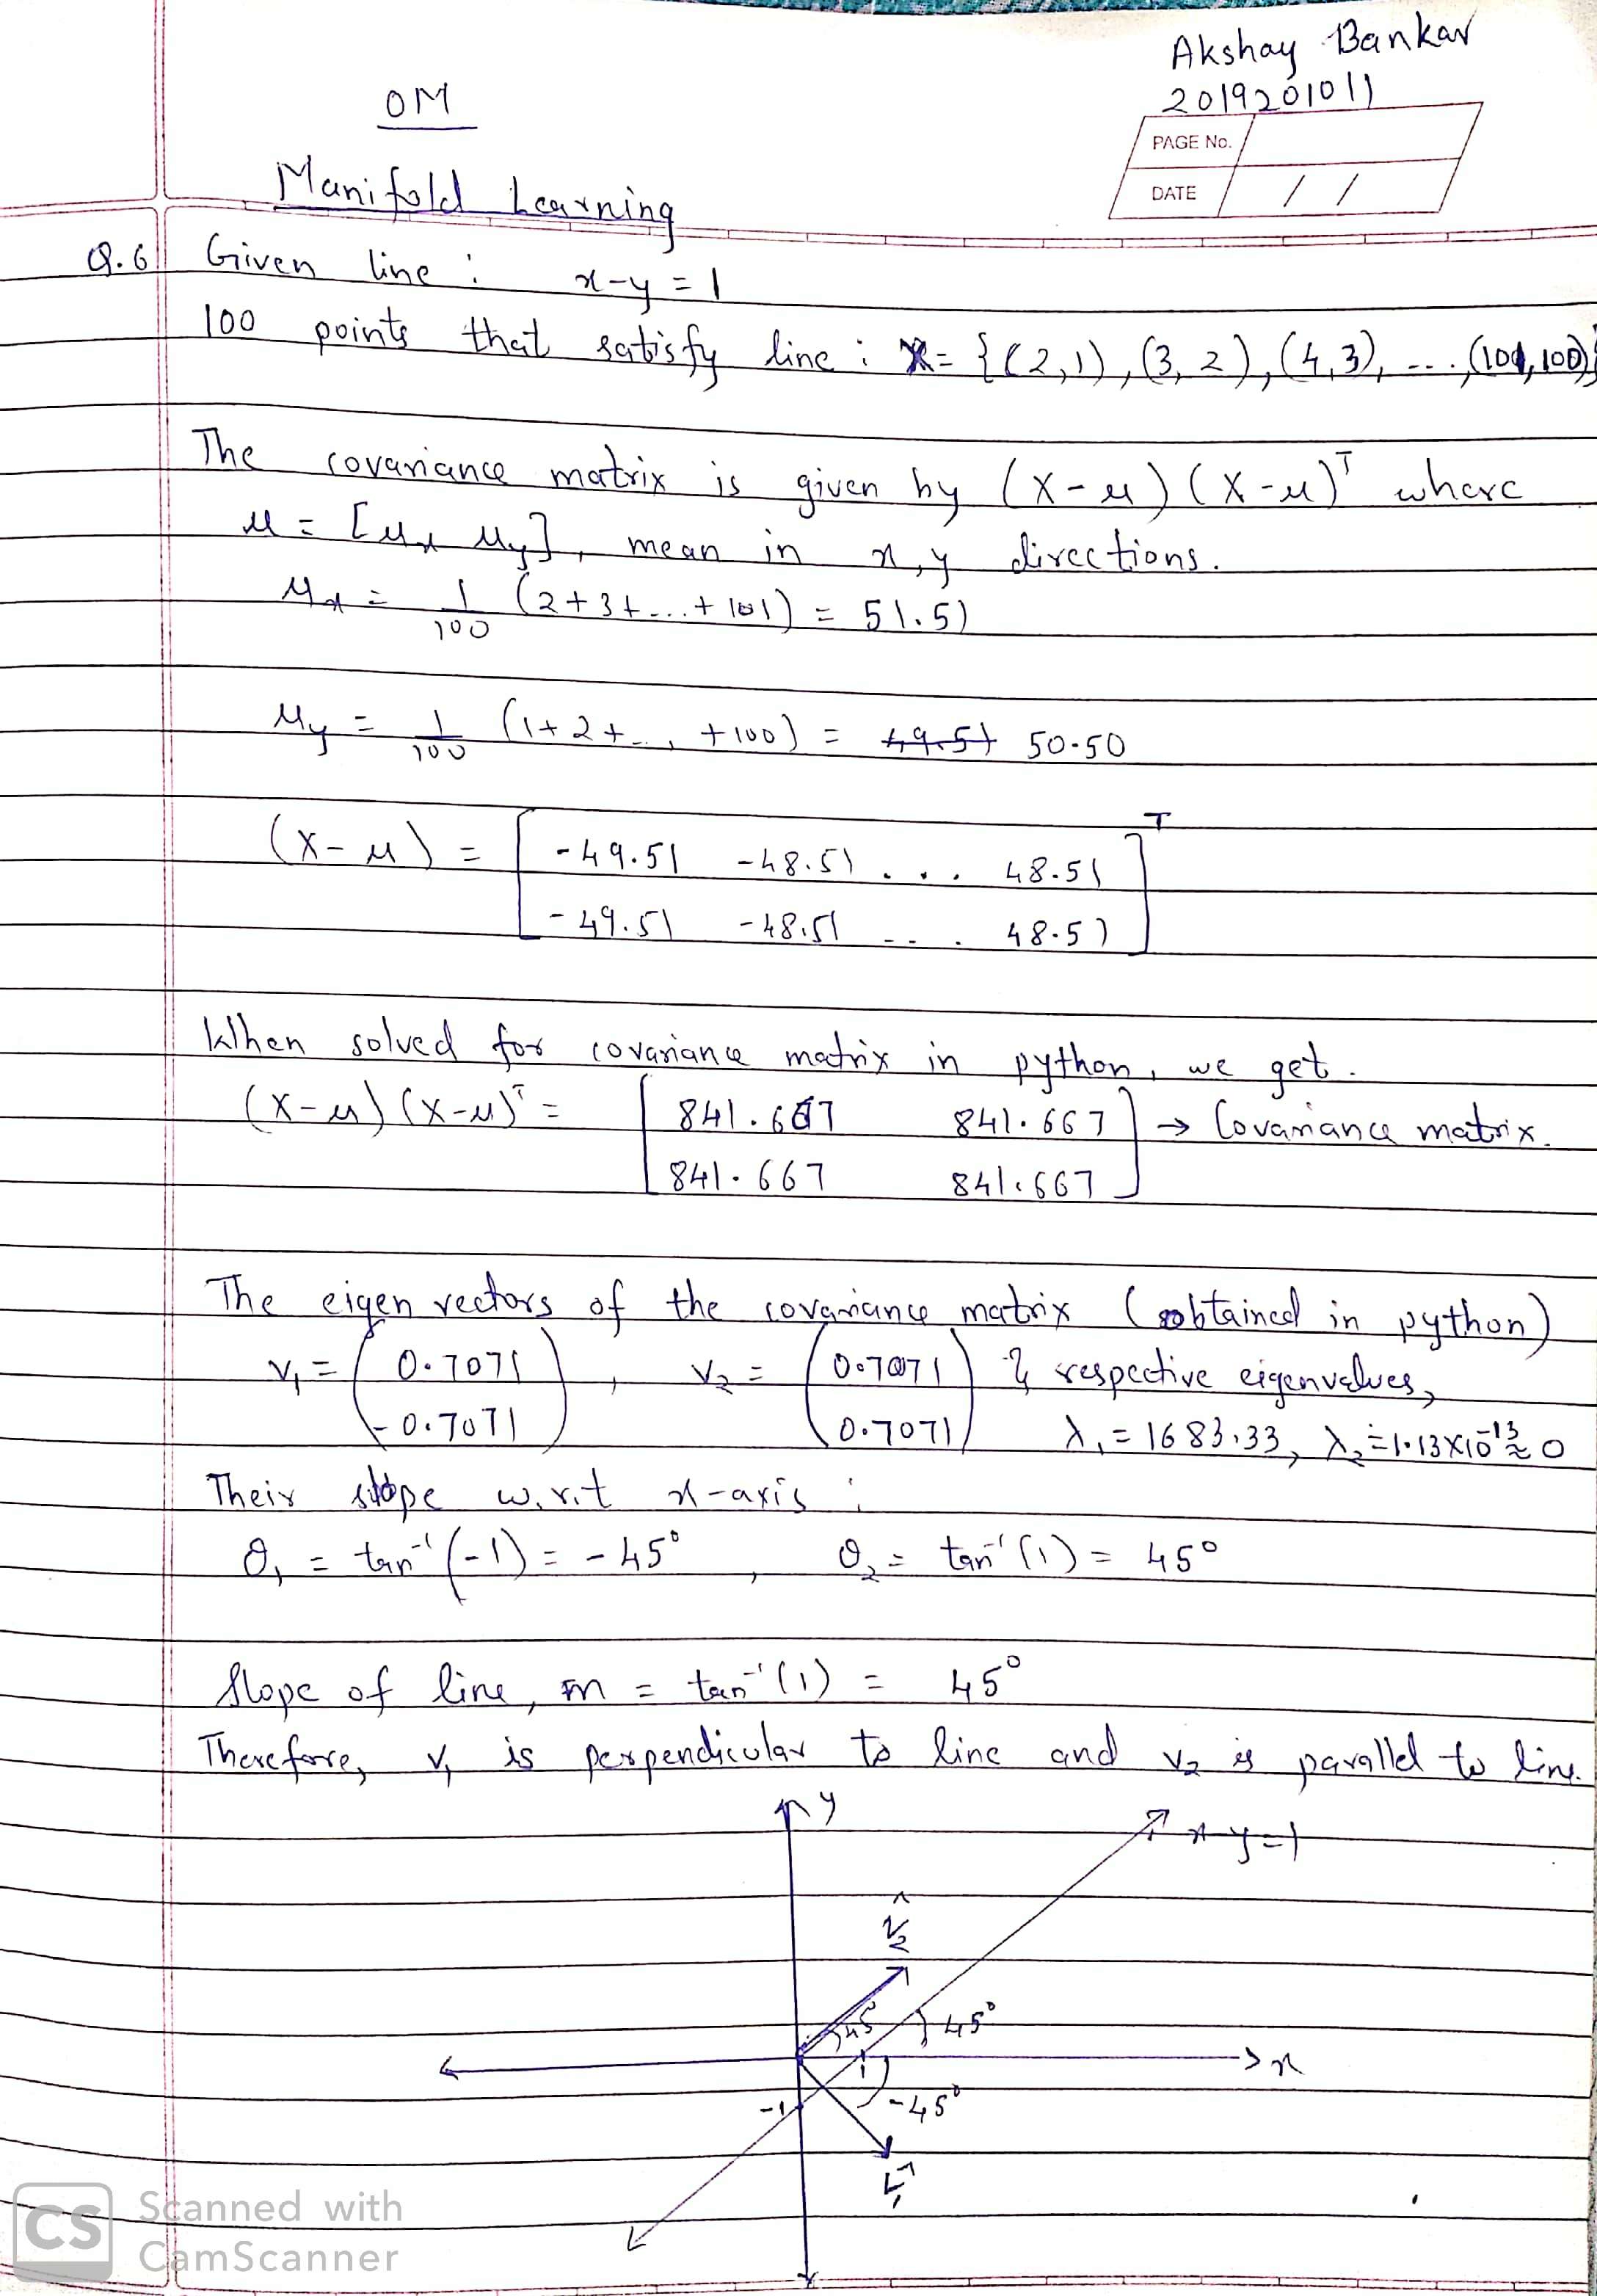 Akshay Bankar
2019201011
OM
PAGE No.
DATE / /
Manifold Learning
Q.6 Given line : x-y = 1
100 points that satisfy line : X = {(2,1), (3,2), (4,3), ... , (101,100)}
The covariance matrix is given by (X-μ)(X-μ)ᵀ where
μ = [μx μy], mean in x,y directions.
μx = 1/100 (2+3+...+101) = 51.51
μy = 1/100 (1+2+...+100) = 49.51 50.50
(X-μ) = [ -49.51 -48.51 ... 48.51 ]ᵀ
-49.51 -48.51 ... 48.51
When solved for covariance matrix in python, we get.
(X-μ)(X-μ)ᵀ = [ 841.667 841.667 ] → Covariance matrix.
841.667 841.667
The eigen vectors of the covariance matrix (obtained in python)
v₁ = ( 0.7071 ), v₂ = ( 0.7071 ) & respective eigenvalues,
-0.7071 0.7071 λ₁ = 1683.33, λ₂ = 1.13×10⁻¹³ ≈ 0
Their slope w.r.t x-axis :
θ₁ = tan⁻¹(-1) = -45°, θ₂ = tan⁻¹(1) = 45°
Slope of line, m = tan⁻¹(1) = 45°
Therefore, v₁ is perpendicular to line and v₂ is parallel to line.
y
x-y=1
v₂
45 45°
x
1
-1 -45°
v₁
CS Scanned with
CamScanner